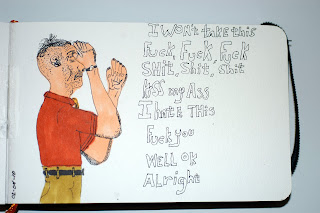 I WON't take this
Fuck, Fuck, Fuck
SHit, Shit, shit
Kiss my Ass
I hate THIS
Fuck you
WELL OK
ALright